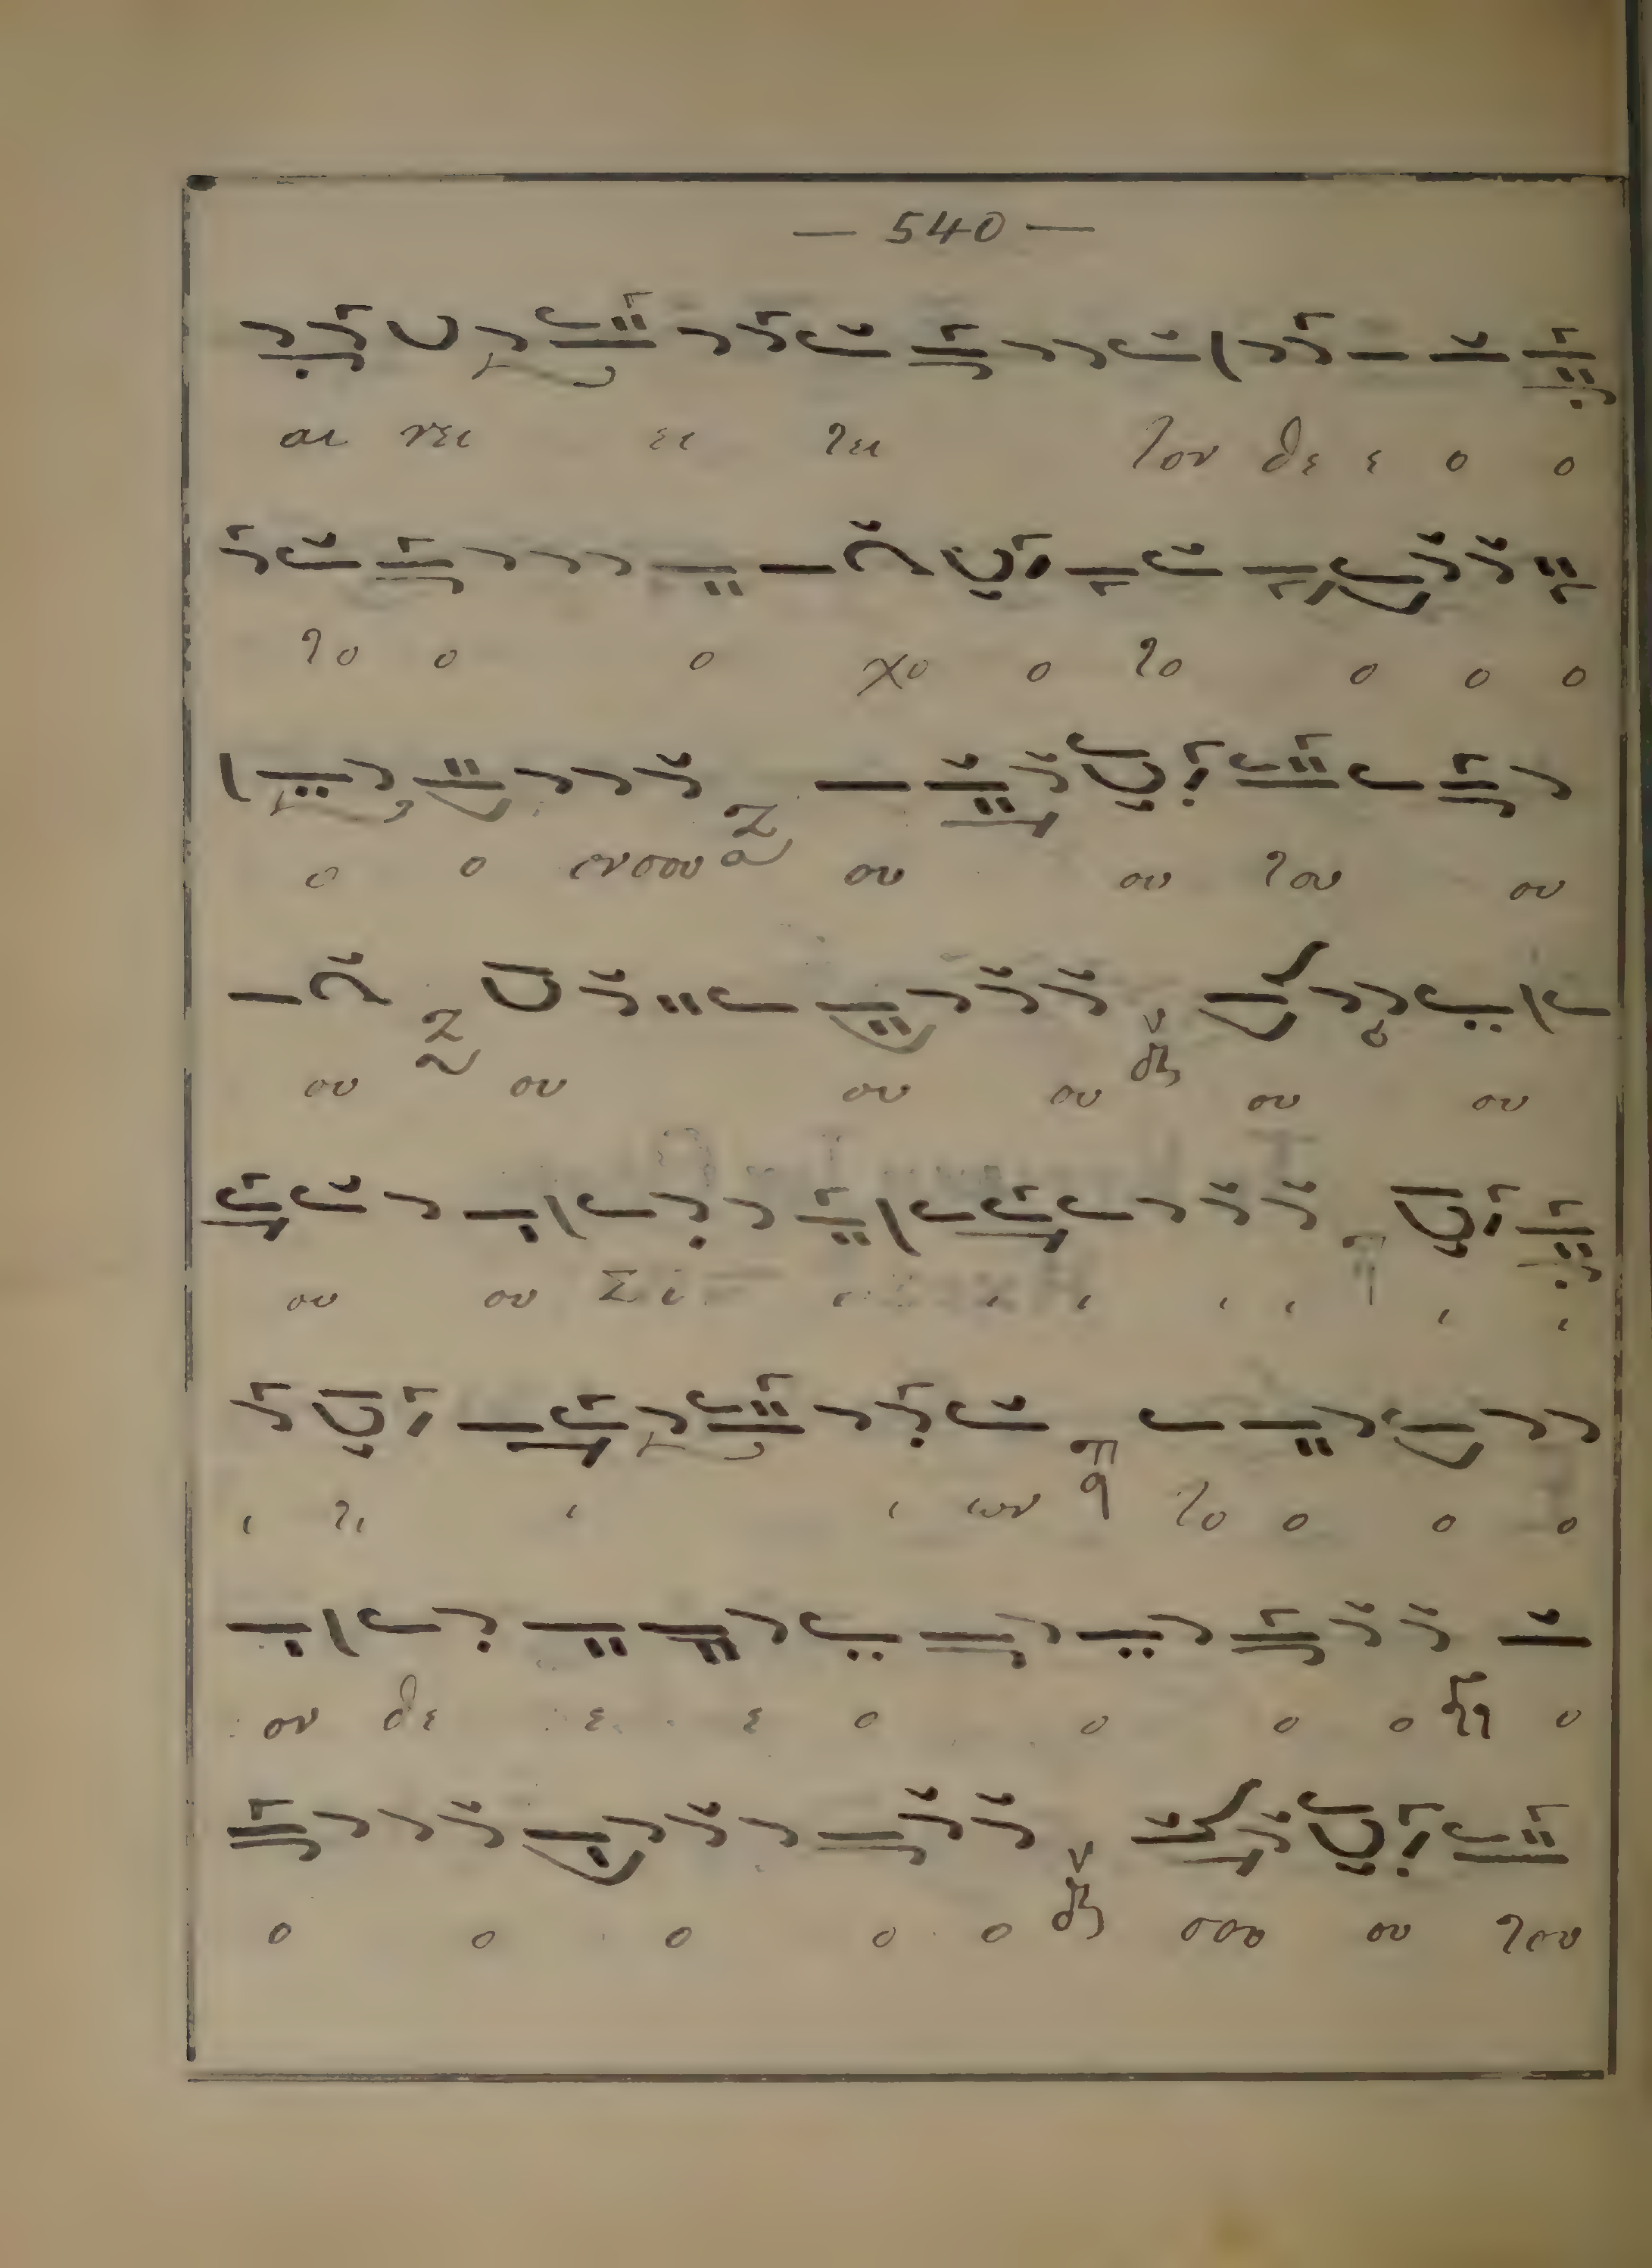 — 540 —
αι νει ει τει τον δε ε ο ο
το ο ο χο ο το ο ο ο
ο ο ονσου ου ου του ου
ου ου ου ου ου ου
ου ου Σι ι ι ι ι ι ι ι
ι τι ι ι ων το ο ο ο
ον δε ε ε ο ο ο ο ο
ο ο ο ο ο σου ου του